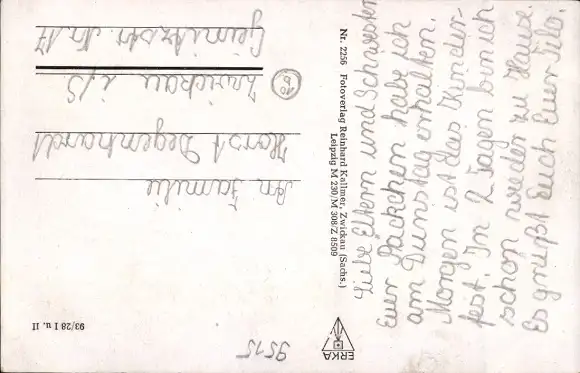 Liebe Eltern und Schwester
Euer Päckchen habe ich
am Dienstag erhalten.
Morgen ist das Kinder-
fest. In 2 Tagen bin ich
schon wieder zu Hause.
Es grüßt Euch Euer Tilo.
Nr. 2256 Fotoverlag Reinhard Kallmer, Zwickau (Sachs.)
Leipzig M 230/M 308/Z 8509
An Familie
Horst Degenhardt
Zwickau i/S
Geinitzstr. Nr. 17
ERKA
93/28 I u. II
9515